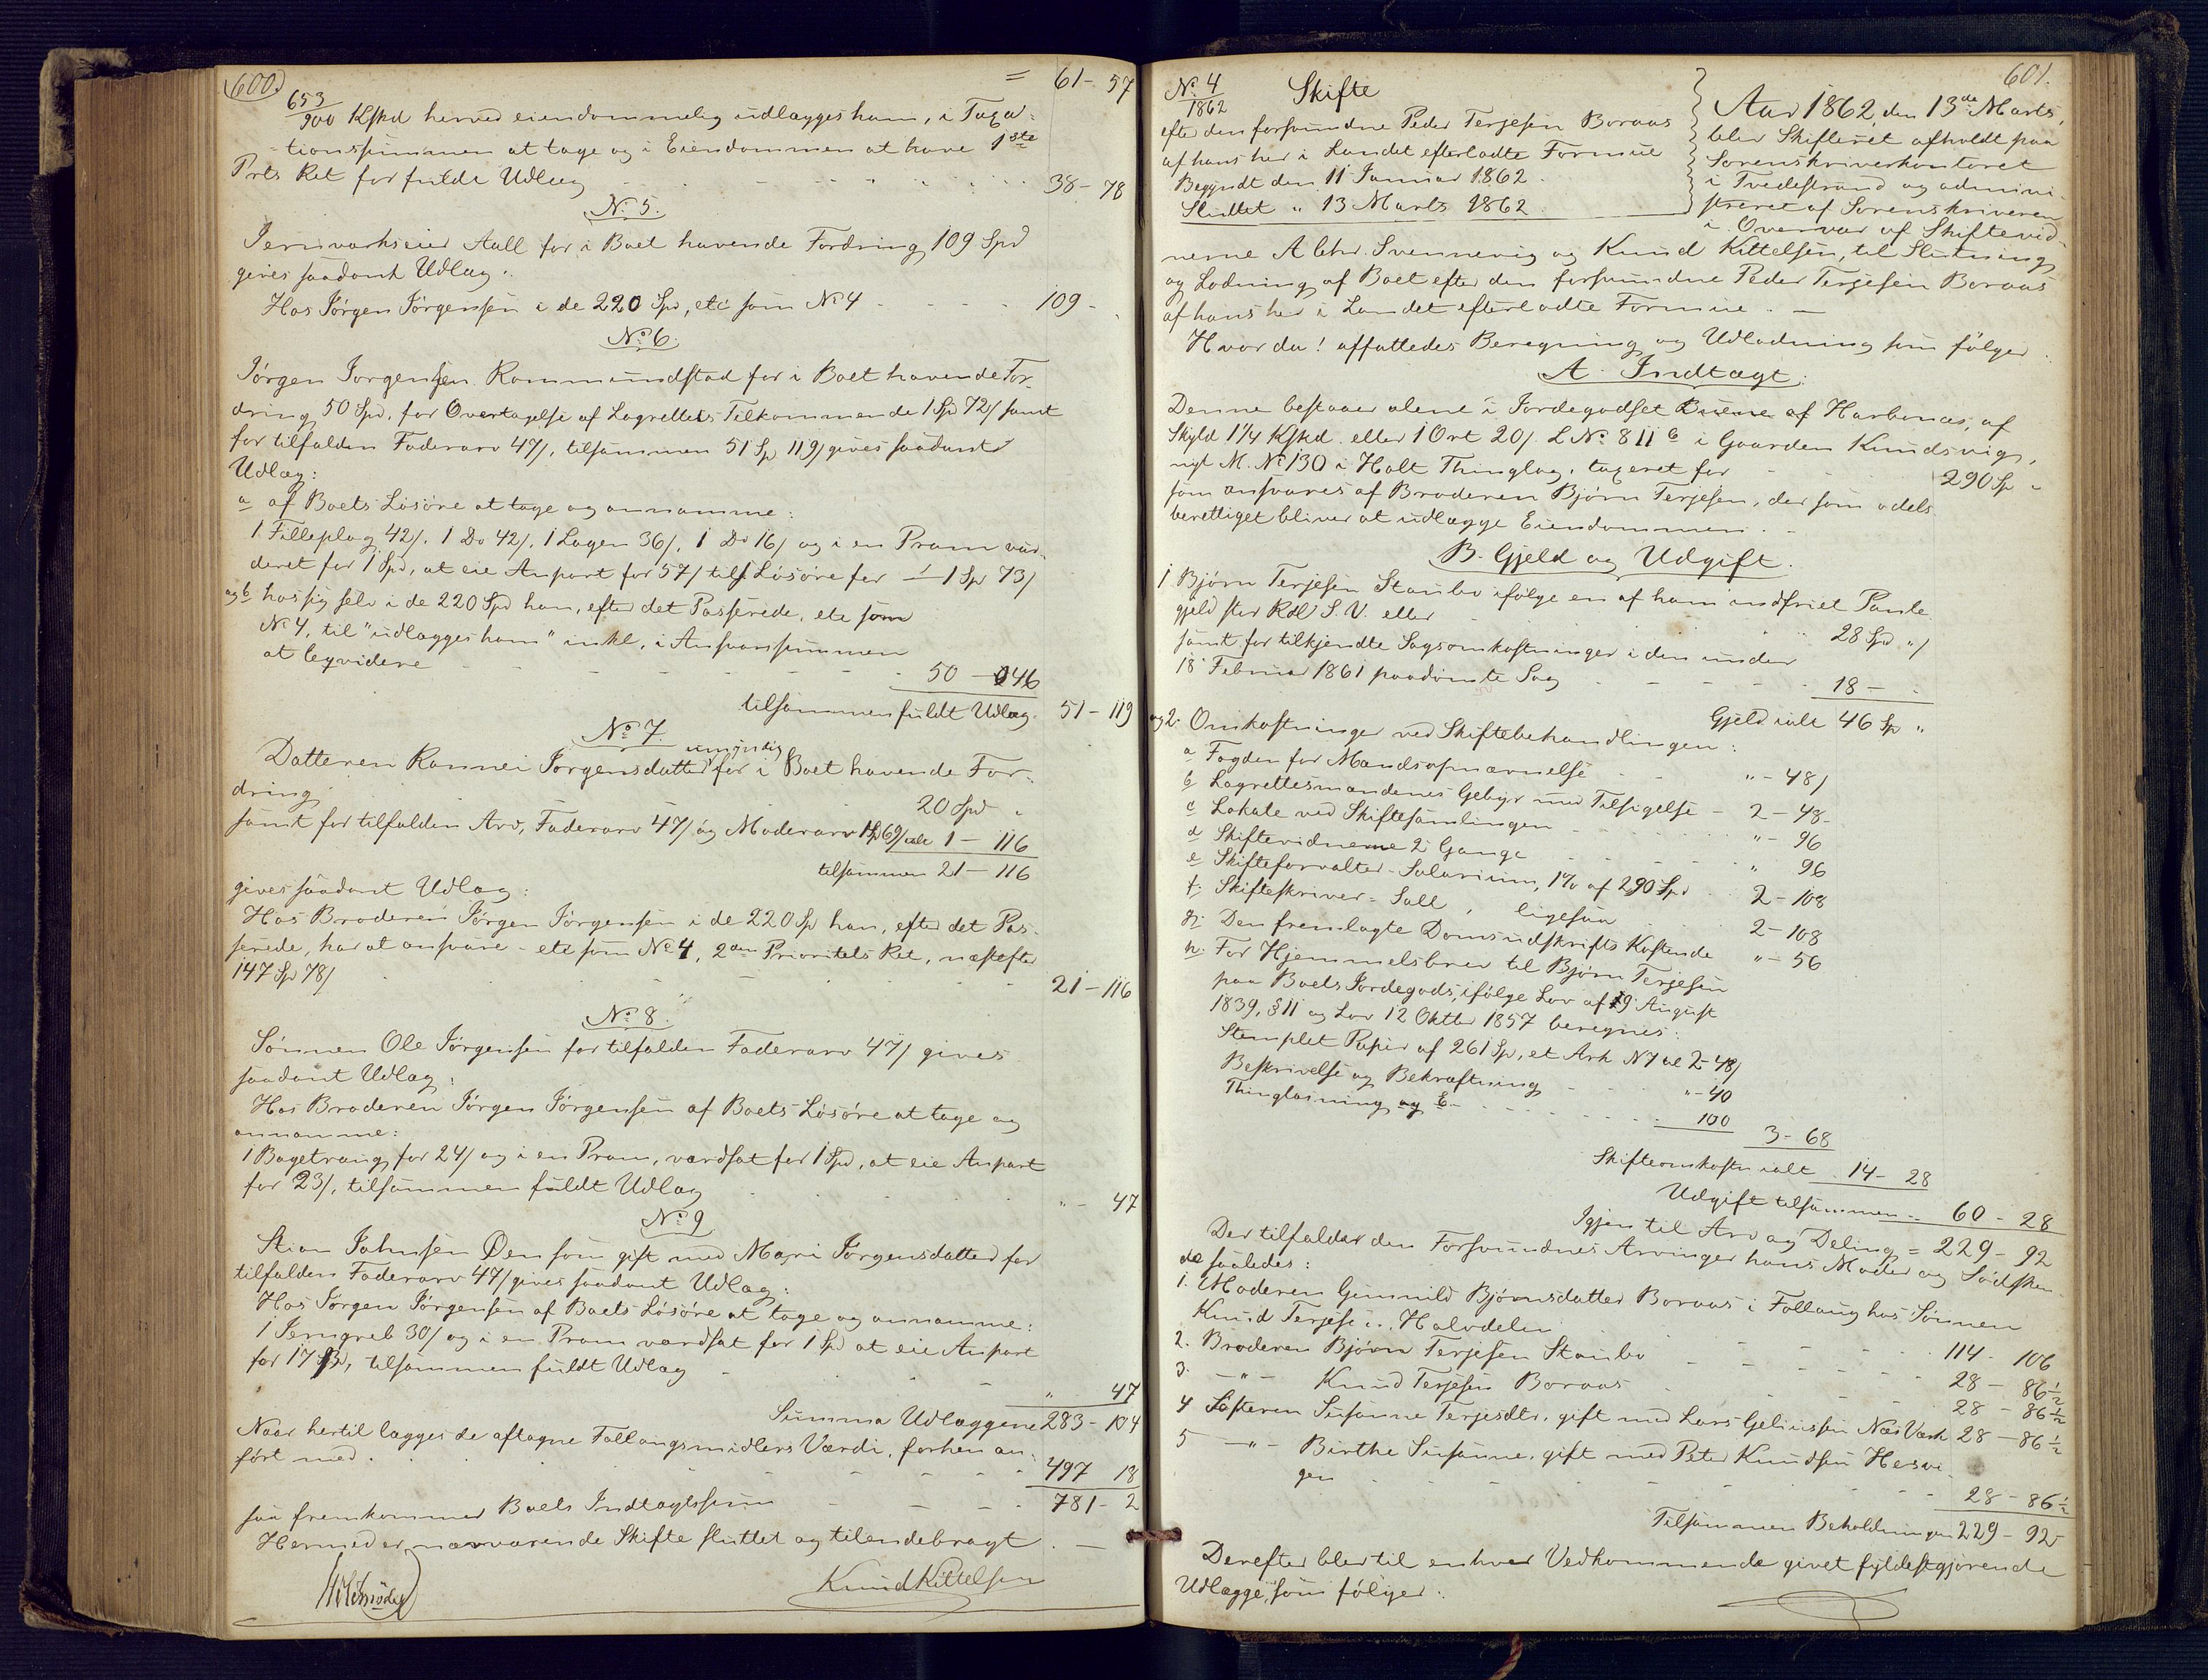 600.
= 61 - 57
653/900 Kskd herved eiendommelig udlægges ham, i Taxa-
tionssummen at tage og i Eiendommen at have 1ste
Prts Ret for fuldt Udlæg 38 - 78
No 5.
Jernværkseier Aall for i Boet havende Fordring 109 Spd
gives saadant Udlæg:
Hos Jørgen Jørgensen i de 220 Spd, etc som No 4 109 -
No 6.
Jørgen Jørgensen Rommundstad for i Boet havende For-
dring 50 Spd, for Overtagelse af Lagrettets Tilkommende 1 Spd 72/ samt
for tilfalden Faderarv 47/, tilsammen 51 Sp 119/ gives saadant
Udlæg:
a af Boets Løsøre at tage og annamme:
1 Filleplag 42/. 1 Do 42/. 1 Lagen 36/. 1 Do 16/ og i en Pram vær-
deret for 1 Spd, at eie Anpart for 57/ tils Løsøre for - 1 Spd 73/
og b hos sig selv i de 220 Spd han, efter det Passerede, etc som
No 4, til "udlægges ham" inkl., i Ansvarssummen
at leqvidere 50 - 046
tilsammen fuldt Udlæg. 51 - 119
No 7.
Datteren Rannei Jørgensdatter umyndig for i Boet havende For-
dring 20 Spd "
samt for tilfalden Arv, Faderarv 47/ og Moderarv 1 Sp 69/ ialt 1 - 116
tilsammen 21 - 116
gives saadant Udlæg:
Hos Broderen Jørgen Jørgensen i de 220 Sp han, efter det Pas-
serede, har at ansvare - etc som No 4, 2den Prioritets Ret, næstefter
147 Spd 78/ 21 - 116
No 8.
Sønnen Ole Jørgensen for tilfalden Faderarv 47/ gives
saadant Udlæg:
Hos Broderen Jørgen Jørgensen af Boets Løsøre at tage og
annamme:
1 Bagetraug for 24/ og i en Pram, værdsat for 1 Spd, at eie Anpart
for 23/, tilsammen fuldt Udlæg " - 47
No 9
Stian Johnsen Øen som gift med Mari Jørgensdatter for
tilfalden Faderarv 47/ gives saadant Udlæg:
Hos Jørgen Jørgensen af Boets Løsøre at tage og annamme:
1 Jerngreb 30/ og i en Pram værdsat for 1 Spd at eie Anpart
for 17 /, tilsammen fuldt Udlæg " 47
Summa Udlæggene 283 - 104
Naar hertil lægges de aftagne Follaugsmidlers Værdi, forhen an-
ført med 497 18
saa fremkommer Boets Indtægtssum 781 - 2
Hermed er nærværende Skifte sluttet og tilendebragt.
Knud Kittelsen
601.
No 4/1862 Skifte
efter den forsvundne Peder Terjesen Boraas
af hans her i Landet efterladte Formue
Begyndt den 11 Januar 1862.
Sluttet " 13 Marts 1862.
Aar 1862, den 13de Marts,
blev Skifteret afholdt paa
Sorenskriverkontoret
i Tvedestrand og admini-
streret af Sorenskriveren
i Overvær af Skiftevid-
nerne A Chr. Svennevig og Knud Kittelsen, til Slutning
og Lodning af Boet efter den forsvundne Peder Terjesen Boraas
af hans her i Landet efterladte Formue. -
Hvor da! affattedes Beregning og Udlodning som følger.
A. Indtægt:
Denne bestaaer alene i Jordegodset Buene af Harbonæs, af
Skyld 1 1/4 Kskd. eller 1 Ort 20/. L No 811 b i Gaarden Knudsvig,
nyt M. No 130 i Holt Thinglag, taxeret for 290 Sp "
som ansvares af Broderen Bjørn Terjesen, der som odels
berettiget bliver at udlægge Eiendommen. -
B. Gjeld og Udgift.
1 Bjørn Terjesen Staubo ifølge en af ham indfriet Pante
gjeld stor Rdl S.V. eller 28 Spd " /
samt for tilkjendte Sagsomkostninger i den under
18 Februar 1861 paadømte Sag 18 - "
Gjeld ialt 46 Sp "
og 2. Omkostninger ved Skiftebehandlingen:
a Fogden for Mændsopnævnelse " - 48/
b Lagrettesmændenes Gebyr med Tilsigelse - 2 - 48 -
c Lokale ved Skiftesamlingen " - 96
d Skiftevidnerne 2 Gange " 96
e Skifteforvalter-Salarium, 1% af 290 Spd 2 - 108
f. Skifteskriver-Sall, ligesaa 2 - 108
g. Den fremlagte Domsudskrifts Kostende " - 56
h. For Hjemmelsbrev til Bjørn Terjesen
paa Boets Jordegods, ifølge Lov af 19 August
1839, § 11 og Lov 12 Oktbr 1857 beregnes:
Stemplet Papir af 261 Sp, et Ark N 7 al 2 - 48/
Beskrivelse og Bekræftning " - 40
Thinglæsning og E - 100
3 - 68
Skifteomkostn ialt 14 - 28
Udgift tilsammen 60 - 28
Igjen til Arv og Deling = 229 - 92
Der tilfalder den Forsvundnes Arvinger hans Moder og Sødsken-
de saaledes:
1. Moderen Gunnild Bjørnsdatter Boraas i Follaug hos Sønnen
Knud Terjesen, Halvdelen 114 - 106
2. Broderen Bjørn Terjesen Staubo 28 - 86 1/2
3. - " - Knud Terjesen Boraas 28 - 86 1/2
4 Søsteren Susanne Terjesdtr. gift med Lars Geliussen Næs Værk 28 - 86 1/2
5 - " - Birthe Susanne, gift med Peter Knudsen Hesvi-
gen 28 - 86 1/2
Tilsammen Beholdningen 229 - 92
Derefter blev til enhver Vedkommende givet fyldestgjørende
Udlægge, som følger: